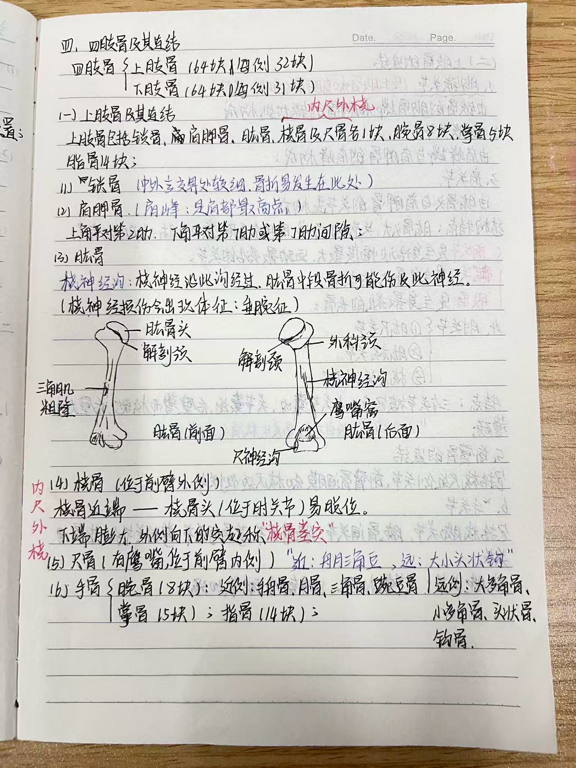 Date.
Page.
四、四肢骨及其连结
四肢骨
上肢骨（64块，每侧32块）
下肢骨（64块，每侧31块）
(一) 上肢骨及其连结
内尺外桡
上肢骨包括锁骨、肩胛骨、肱骨、桡骨及尺骨各1块，腕骨8块，掌骨5块
指骨14块；
(1) 锁骨（中外1/3交界处较细，骨折易发生在此处）
(2) 肩胛骨（肩峰：是肩部最高点。）
上角平对第2肋、下角平对第7肋或第7肋间隙；
(3) 肱骨
桡神经沟：桡神经沿此沟经过，肱骨中段骨折可能伤及此神经。
（桡神经损伤会出现体征：垂腕征）
肱骨头
解剖颈
三角肌
粗隆
肱骨（前面）
解剖颈
外科颈
桡神经沟
鹰嘴窝
肱骨（后面）
尺神经沟
(4) 桡骨（位于前臂外侧）
桡骨近端——桡骨头（位于肘关节）易脱位。
下端膨大，外侧向下的突起称“桡骨茎突”
内尺外桡
(5) 尺骨（有鹰嘴，位于前臂内侧）“近：舟月三角豆，远：大小头状钩”
(6) 手骨
腕骨（8块）：近侧：手舟骨、月骨、三角骨、豌豆骨
远侧：大多角骨、
小多角骨、头状骨、
钩骨.
掌骨（5块）；指骨（14块）；